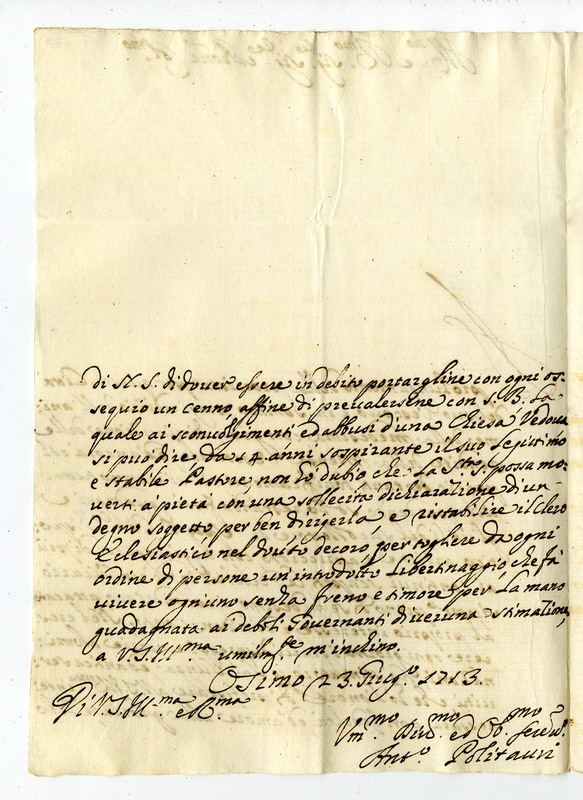 di N. S. di dover essere in debito portargline con ogni os-
sequio un cenno, affine di prevalersene con S. B. la
quale ai sconvolgimenti ed abbusi d'una Chiesa Vedova
si può dire, da 14 anni sospirante il suo legittimo
e stabile Pastore, non hò dubio che la S. possa mo-
verti à pietà con una sollecita dichiaratione di un
degno soggetto per ben dirigerla, e ristabilire il Clero
Ecclesiastico nel douto decoro, per togliere da ogni
ordine di persone un'introdotto Libertinaggio, che fà
vivere ogn'uno senza freno e timore per la mano
guadagnata ai deboli Governanti di veruna stimatione,
a V. S. Ill.ma umilm.te m'inchino.
Osimo 23. Giug.o 1713.
Di V. S. Ill.ma e R.ma
Um.mo Div.mo ed Ob.mo
Ant.o Politauri